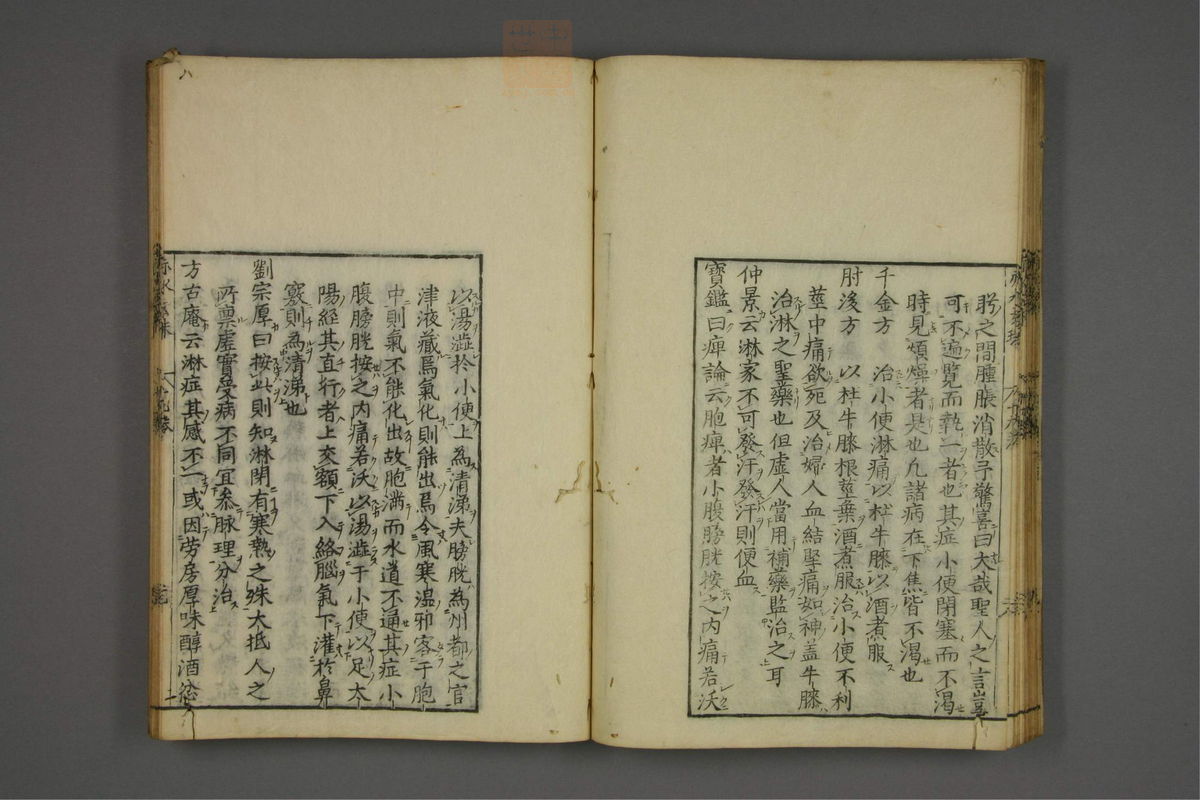 肟之間腫脹消散予驚喜曰大哉聖人之言豈
可不遍覽而執一者也其症小便閉塞而不渴
時見煩燥者是也凡諸病在下焦皆不渴也
千金方 治小便淋痛以杜牛膝以酒煮服
肘後方 以杜牛膝根莖葉酒煮服治小便不利
莖中痛欲死及治婦人血結堅痛如神蓋牛膝
治淋之聖藥也但虛人當用補藥監治之耳
仲景云淋家不可發汗發汗則便血
寶鑑曰痺論云胞痺者小腹膀胱按之內痛若沃
以湯澁於小便上為清涕夫膀胱為州都之官
津液藏焉氣化則能出焉令風寒濕邪客于胞
中則氣不能化出故胞滿而水道不通其症小
腹膀胱按之內痛若沃以湯澁于小便以足太
陽經其直行者上交額下入絡腦氣下灌於鼻
竅則為清涕也
劉宗厚曰按此則知淋閉有寒熱之殊大抵人之
所稟虛實受病不同宜參脉理分治
方古庵云淋症其感不一或因劳房厚味醇酒忿